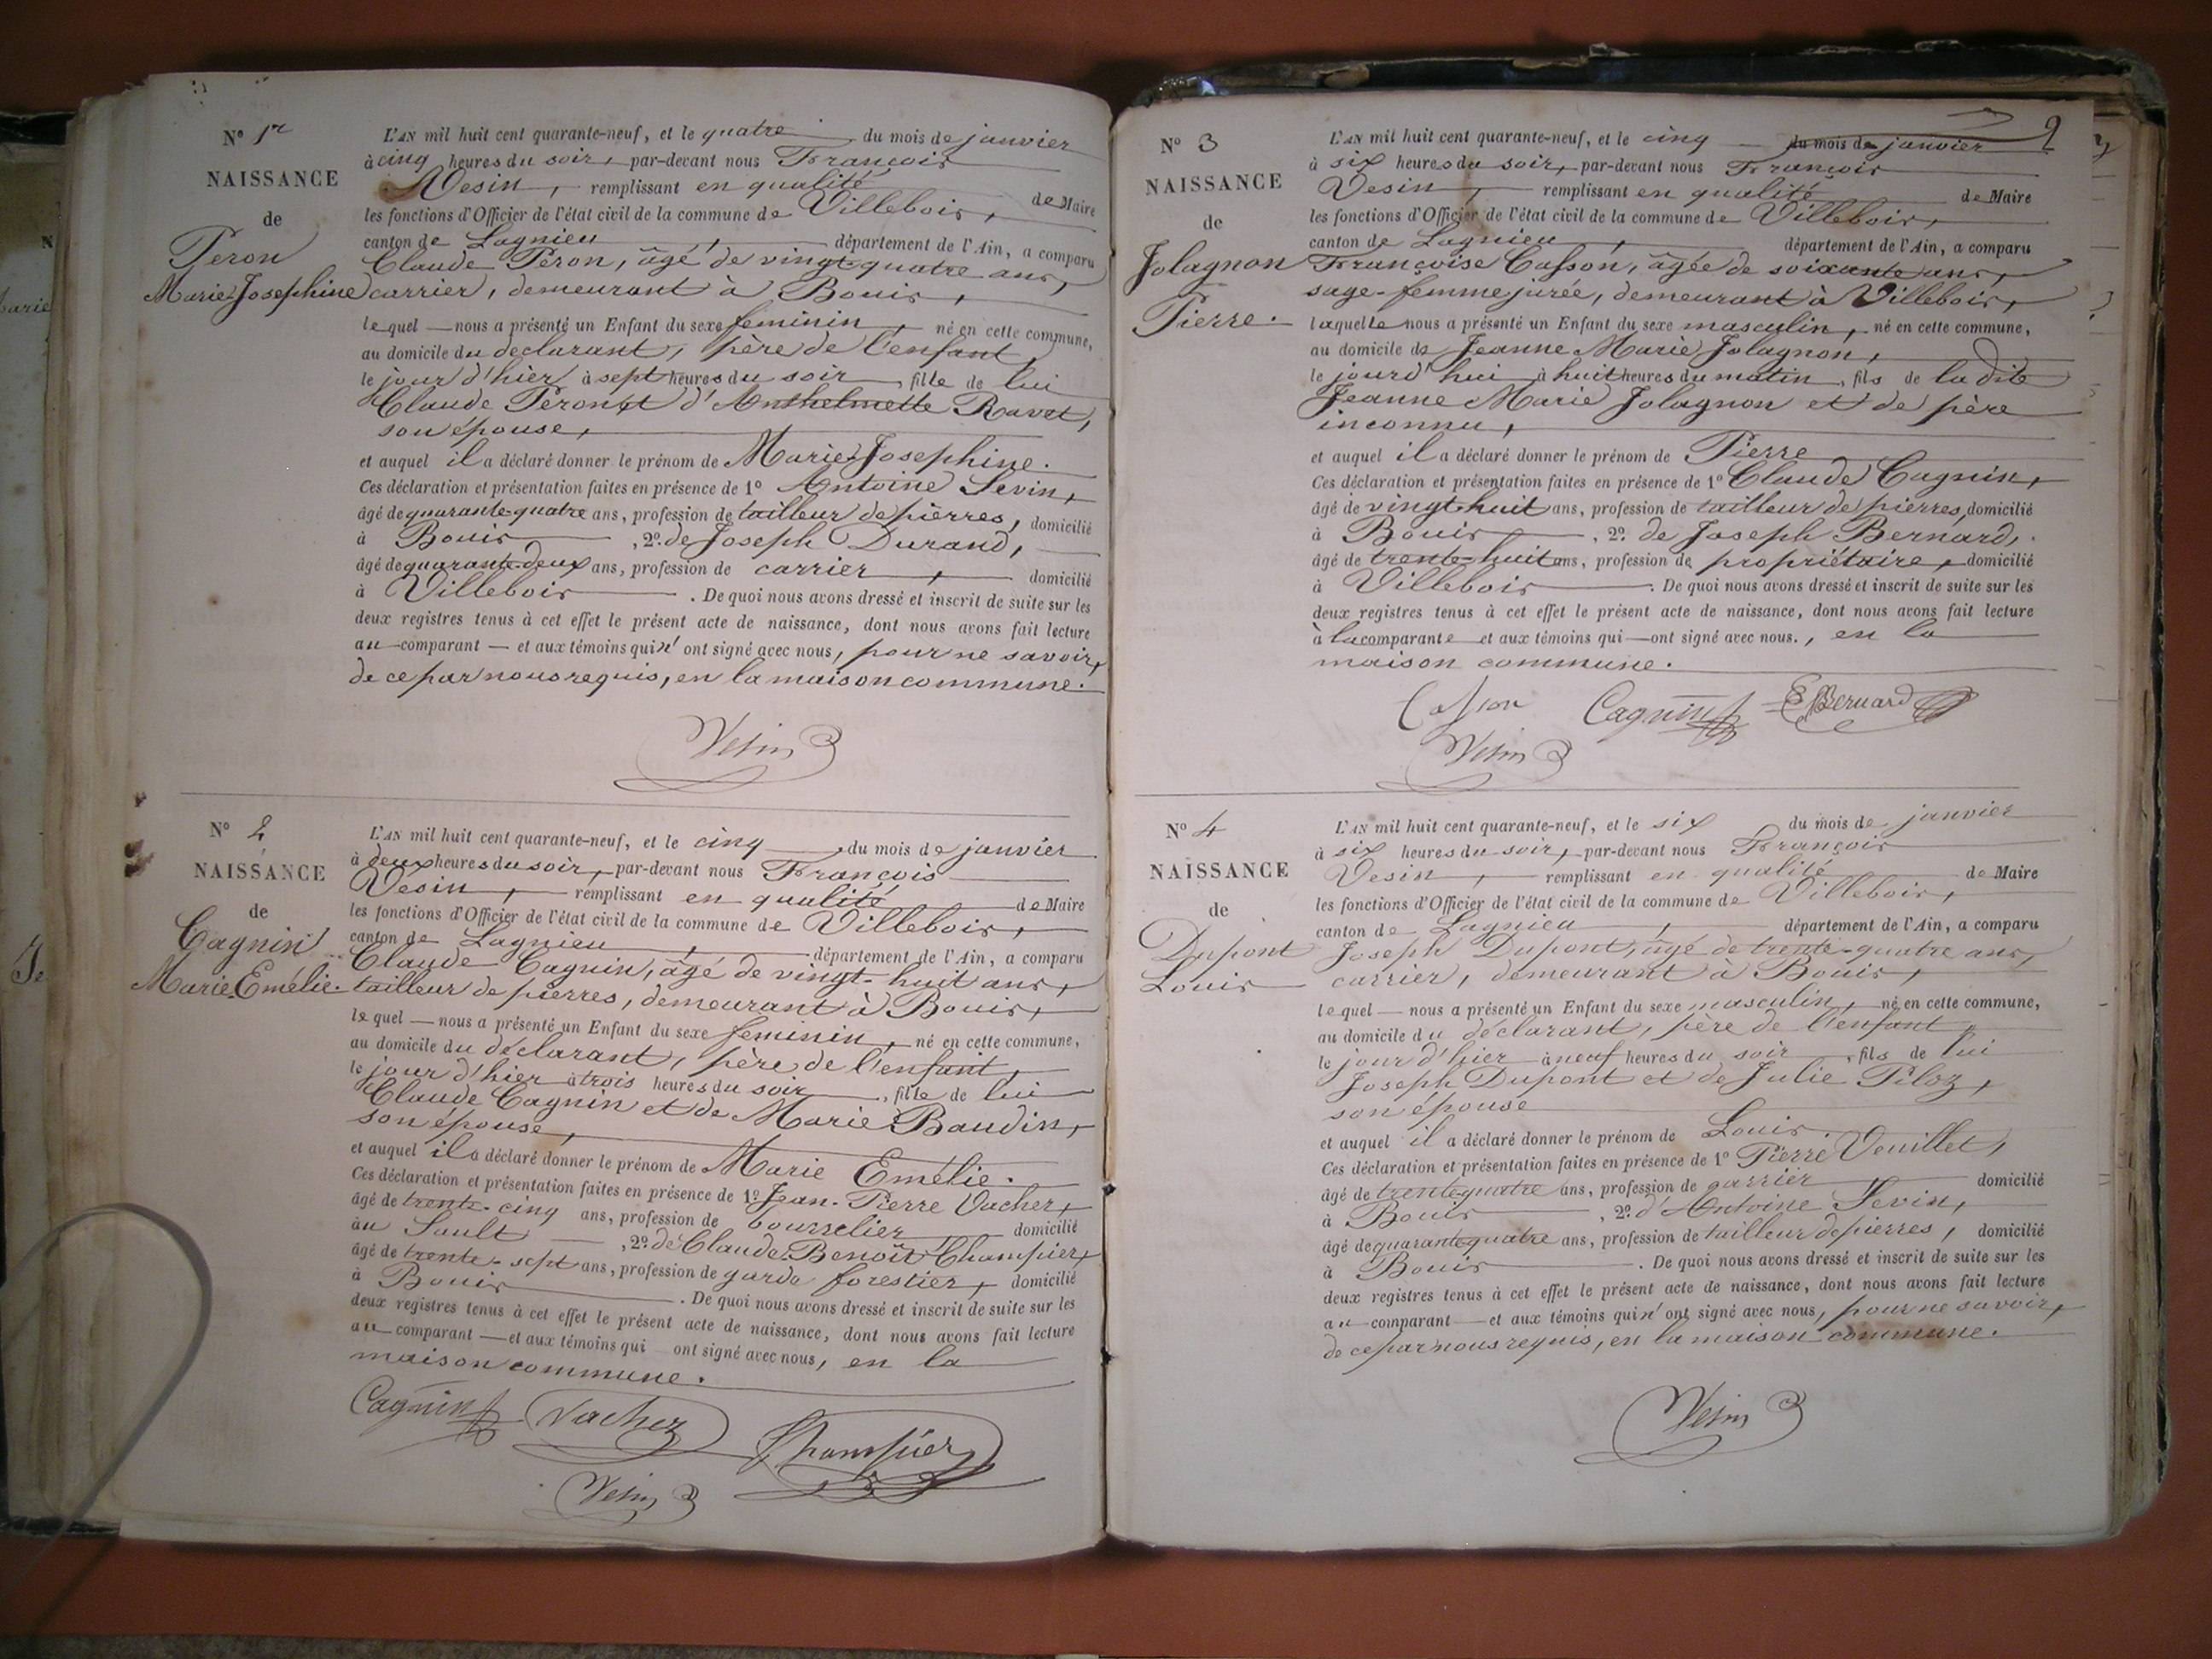 N° 1er
NAISSANCE
de
Peron
Marie-Josephine
L'AN mil huit cent quarante-neuf, et le quatre du mois de janvier
à cinq heures du soir, par-devant nous François
Vesin, remplissant en qualité de Maire
les fonctions d'Officier de l'état civil de la commune de Villebois,
canton de Lagnieu, département de l'Ain, a comparu
Claude Péron, âgé de vingt-quatre ans,
carrier, demeurant à Bouis,
lequel nous a présenté un Enfant du sexe feminin, né en cette commune,
au domicile du déclarant, père de l'enfant,
le jour d'hier à sept heures du soir, fille de lui
Claude Peron et d'Anthelmette Ravet,
son épouse,
et auquel il a déclaré donner le prénom de Marie-Josephine.
Ces déclaration et présentation faites en présence de 1° Antoine Sevin,
âgé de quarante-quatre ans, profession de tailleur de pierres, domicilié
à Bouis, 2° de Joseph Durand,
âgé de quarante-deux ans, profession de carrier, domicilié
à Villebois. De quoi nous avons dressé et inscrit de suite sur les
deux registres tenus à cet effet le présent acte de naissance, dont nous avons fait lecture
au comparant et aux témoins qui n'ont signé avec nous, pour ne savoir,
de ce par nous requis, en la maison commune.
Vesin
N° 2
NAISSANCE
de
Cagnin
Marie-Emélie.
L'AN mil huit cent quarante-neuf, et le cinq du mois de janvier
à deux heures du soir, par-devant nous François
Vesin, remplissant en qualité de Maire
les fonctions d'Officier de l'état civil de la commune de Villebois,
canton de Lagnieu, département de l'Ain, a comparu
Claude Cagnin, âgé de vingt-huit ans,
tailleur de pierres, demeurant à Bouis,
lequel nous a présenté un Enfant du sexe feminin, né en cette commune,
au domicile du déclarant, père de l'enfant,
le jour d'hier à trois heures du soir, fille de lui
Claude Cagnin et de Marie Baudin,
son épouse,
et auquel il a déclaré donner le prénom de Marie Emélie.
Ces déclaration et présentation faites en présence de 1° Jean-Pierre Vacher,
âgé de trente-cinq ans, profession de bourrelier domicilié
au Sault, 2° de Claude-Benoît Champier,
âgé de trente-sept ans, profession de garde forestier, domicilié
à Bouis. De quoi nous avons dressé et inscrit de suite sur les
deux registres tenus à cet effet le présent acte de naissance, dont nous avons fait lecture
au comparant et aux témoins qui ont signé avec nous, en la
maison commune.
Cagnin Vacher Champier
Vesin
N° 3
NAISSANCE
de
Jolagnon
Pierre.
2
L'AN mil huit cent quarante-neuf, et le cinq du mois de janvier
à six heures du soir, par-devant nous François
Vesin, remplissant en qualité de Maire
les fonctions d'Officier de l'état civil de la commune de Villebois,
canton de Lagnieu, département de l'Ain, a comparu
Françoise Casson, âgée de soixante ans,
sage-femme jurée, demeurant à Villebois,
laquelle nous a présenté un Enfant du sexe masculin, né en cette commune,
au domicile de Jeanne Marie Jolagnon,
le jourd'hui à huit heures du matin, fils de la dite
Jeanne Marie Jolagnon et de père
inconnu,
et auquel il a déclaré donner le prénom de Pierre
Ces déclaration et présentation faites en présence de 1° Claude Cagnin,
âgé de vingt-huit ans, profession de tailleur de pierres, domicilié
à Bouis, 2° de Joseph Bernard,
âgé de trente-huit ans, profession de propriétaire, domicilié
à Villebois. De quoi nous avons dressé et inscrit de suite sur les
deux registres tenus à cet effet le présent acte de naissance, dont nous avons fait lecture
à la comparante et aux témoins qui ont signé avec nous., en la
maison commune.
Casson Cagnin Bernard
Vesin
N° 4
NAISSANCE
de
Dupont
Louis
L'AN mil huit cent quarante-neuf, et le six du mois de janvier
à six heures du soir, par-devant nous François
Vesin, remplissant en qualité de Maire
les fonctions d'Officier de l'état civil de la commune de Villebois,
canton de Lagnieu, département de l'Ain, a comparu
Joseph Dupont, âgé de trente-quatre ans,
carrier, demeurant à Bouis,
lequel nous a présenté un Enfant du sexe masculin, né en cette commune,
au domicile du déclarant, père de l'enfant,
le jour d'hier à neuf heures du soir, fils de lui
Joseph Dupont et de Julie Piloz,
son épouse
et auquel il a déclaré donner le prénom de Louis.
Ces déclaration et présentation faites en présence de 1° Pierre Veuillet,
âgé de trente quatre ans, profession de carrier domicilié
à Bouis, 2° d'Antoine Sevin,
âgé de quarante quatre ans, profession de tailleur de pierres, domicilié
à Bouis. De quoi nous avons dressé et inscrit de suite sur les
deux registres tenus à cet effet le présent acte de naissance, dont nous avons fait lecture
au comparant et aux témoins qui n'ont signé avec nous, pour ne savoir,
de ce par nous requis, en la maison commune.
Vesin